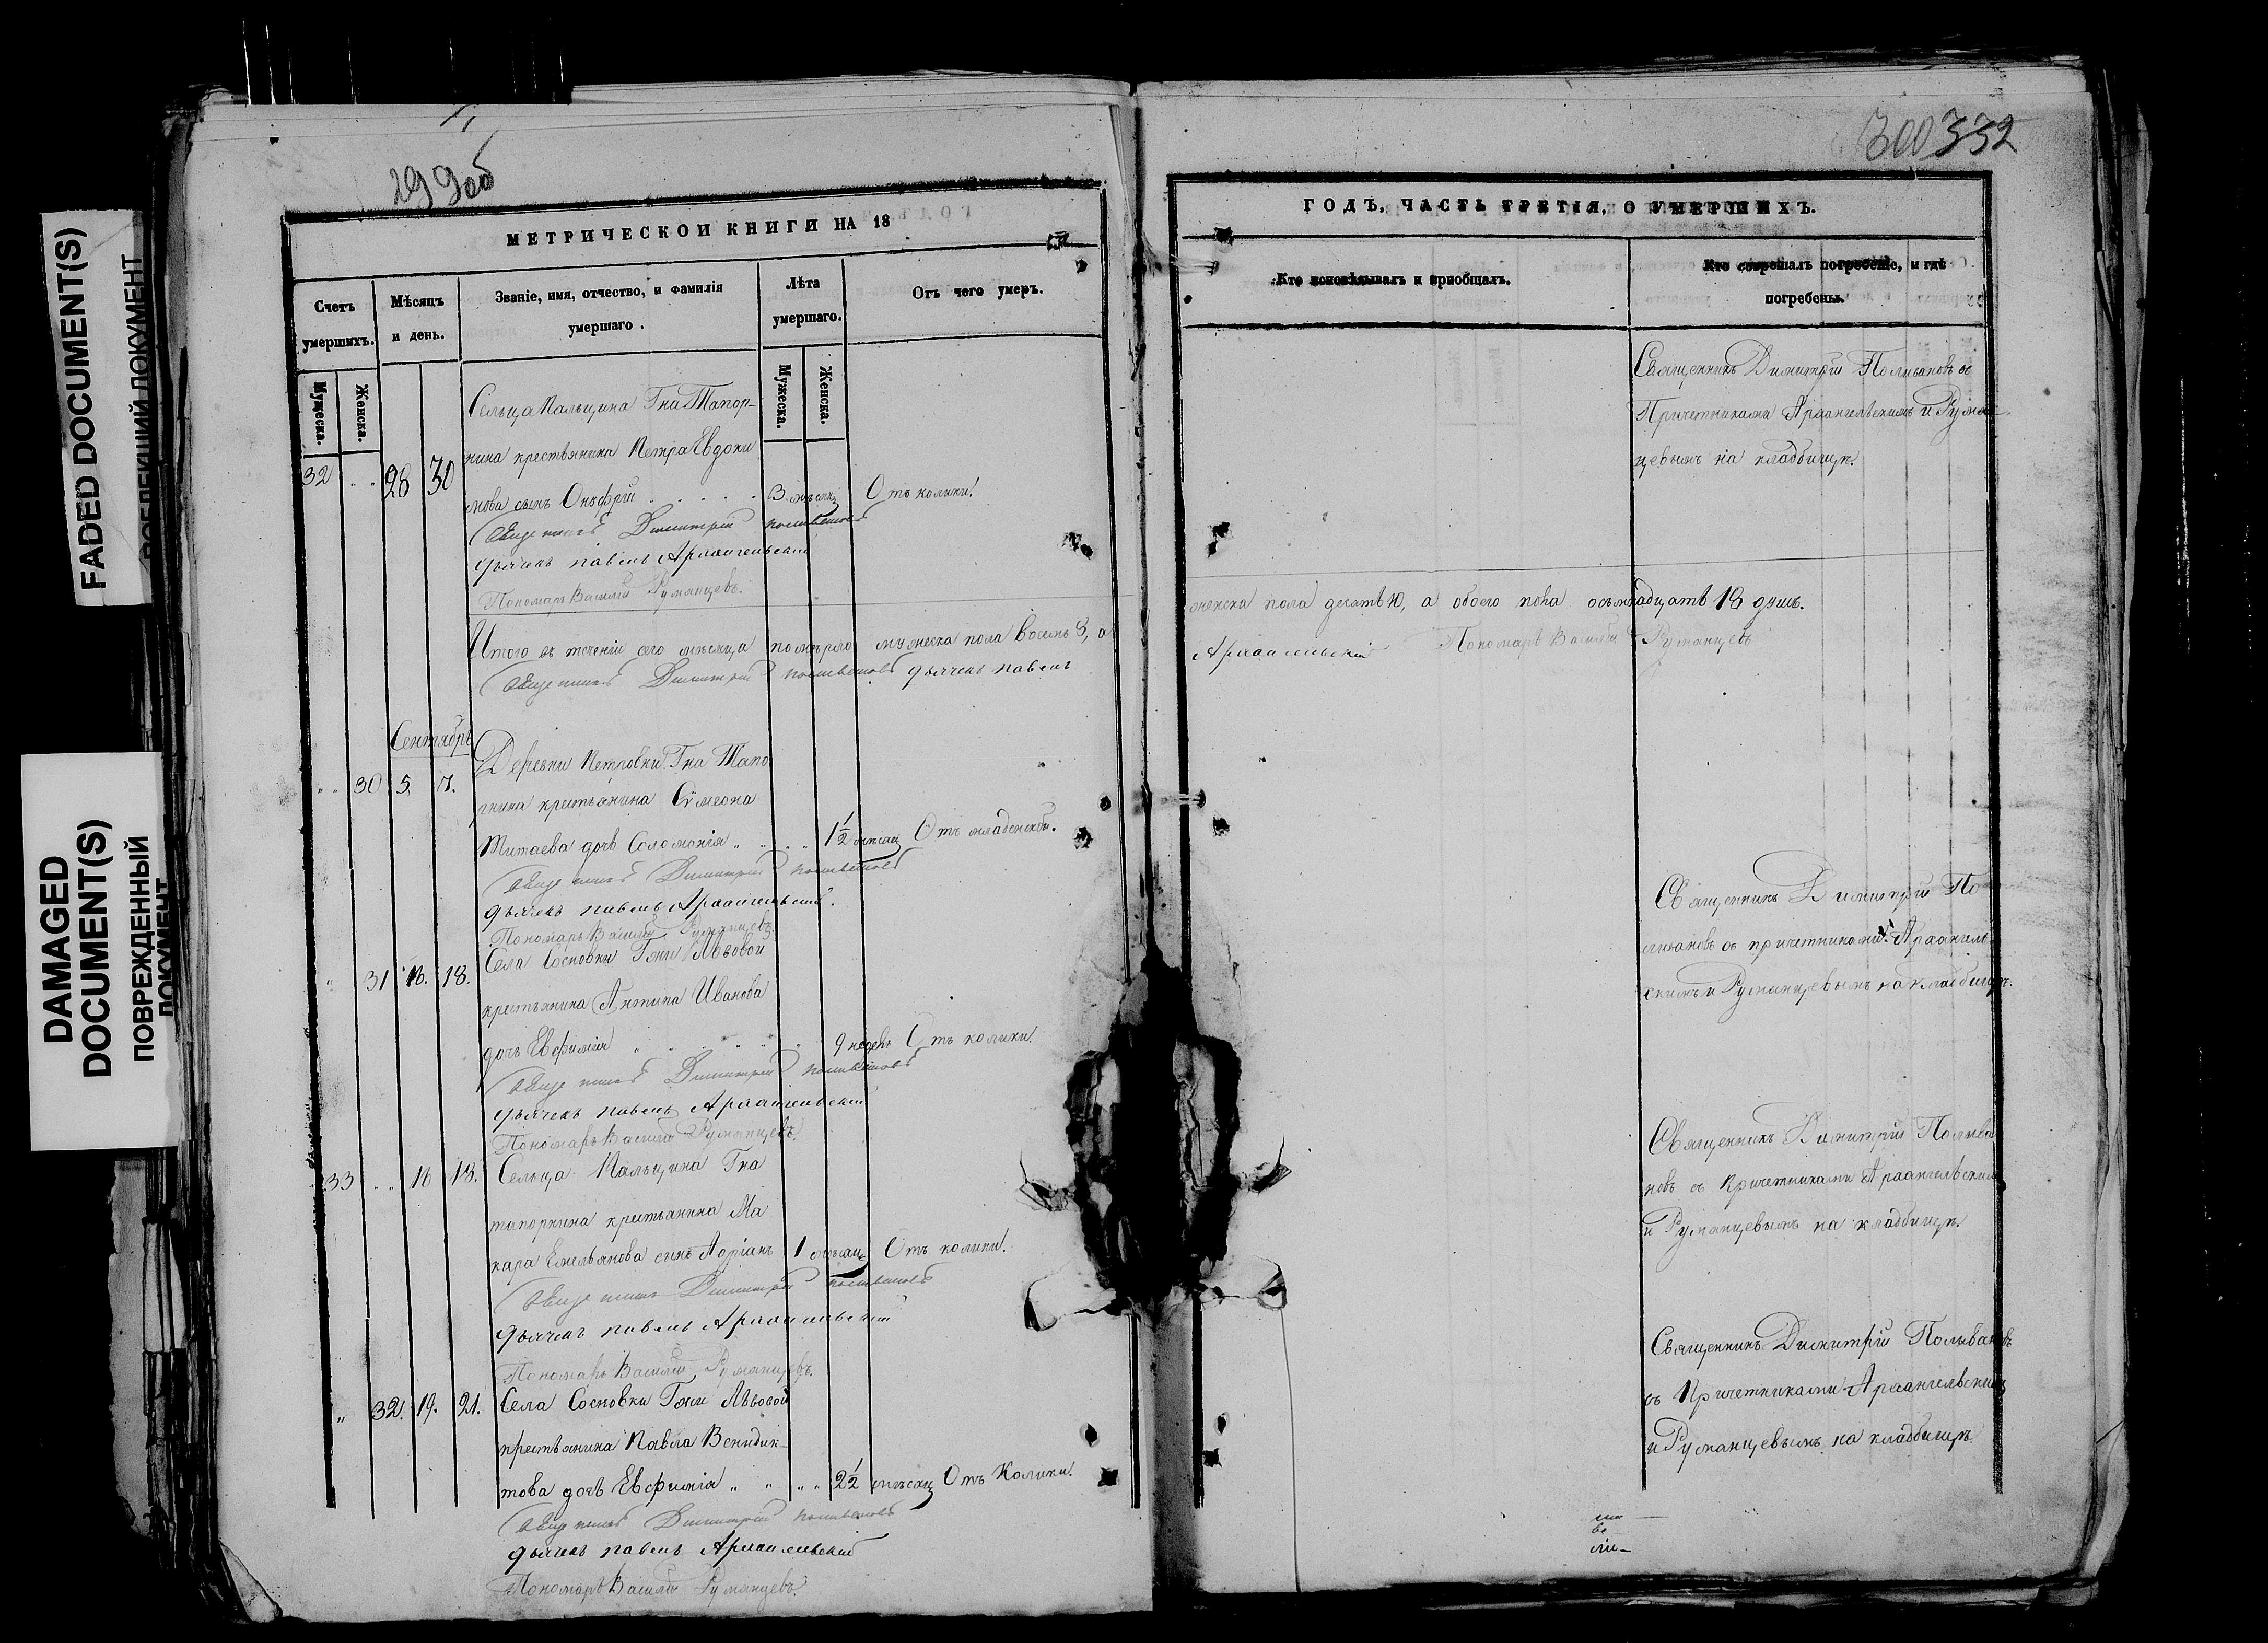 FADED DOCUMENT(S)
DAMAGED
DOCUMENT(S)
ПОВРЕЖДЕННЫЙ
ДОКУМЕНТ
299об
МЕТРИЧЕСКОИ КНИГИ НА 18
Счетъ умершихъ.
Мѣсяцъ и день.
Званіе, имя, отчество, и фамилія умершаго.
Лѣта умершаго.
Отъ чего умеръ.
Мужеска.
Женска.
Мужеска.
Женска.
Сельца Кальщина Гна Тапор-
нина крествянина Петра Евдоки
32 28 30 мова сынъ Онуфрій 3 мѣсяц Отъ колики.
Священникъ Димитрій Поливановъ
дьячекъ павелъ Архангельский
Пономарь Василій Румянцевъ.
Итого въ теченіи сего мѣсяца померло мужеска пола восемь 8, а
Священникъ Димитрій Поливановъ дьячекъ павелъ
Сентябрь
30 5 7. Деревни Петровки Гна Тапо
рнина крестьянина Сѵмеона
Титаева дочь Соломонія 1½ мѣсяц Отъ младенской.
Священникъ Димитрій Поливановъ
дьячекъ павелъ Архангельский.
Пономарь Василій Румянцевъ.
31 18. Села Сосновки Гжи Львовой
крестьянина Антипа Иванова
дочь Евфимія 9 недель Отъ колики.
Священникъ Димитрій Поливановъ
дьячекъ павелъ Архангельский
Пономарь Василій Румянцевъ.
33 16 18. Сельца Кальщина Гна
тапорнина крестьянина Ма
кара Емельянова сынъ Адріанъ 1 мѣсяц Отъ колики.
Священникъ Димитрій Поливановъ
дьячекъ павелъ Архангельский
Пономарь Василій Румянцевъ.
32. 19. 21. Села Сосновки Гжи Львовой
крестьянина Павла Венидик-
това дочь Евфимія 2½ мѣсяц Отъ Колики.
Священникъ Димитрій Поливановъ
дьячекъ павелъ Архангельский
Пономарь Василій Румянцевъ.
300 332
ГОДЪ, ЧАСТЬ ТРЕТІЯ, О УМЕРШИХЪ.
Кто исповѣдывалъ и приобщалъ.
Кто совершалъ погребеніе, и гдѣ
погребены.
Священникъ Димитрій Поливановъ съ
Причетниками Архангельскимъ и Румян
цевымъ на кладбищѣ.
женска пола десять 10, а обоего пола осьмнадцать 18 душъ.
Архангельский Пономарь Василій Румянцевъ
Священникъ Димитрій По
ливановъ съ причетниками Архангель
скимъ и Румянцевымъ на кладбищѣ.
Священникъ Димитрій Полива
новъ съ Причетниками Архангельским
и Румянцевымъ на кладбищѣ.
Священникъ Димитрій Поливановъ
съ Причетниками Архангельским
и Румянцевымъ на кладбищѣ.